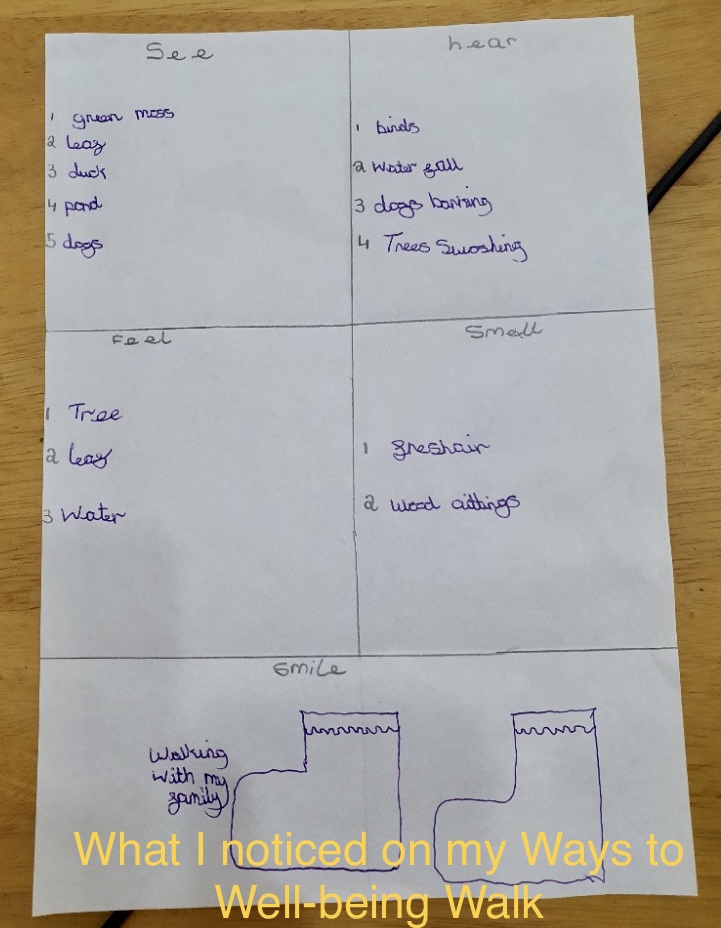 See
1 green moss
2 leaf
3 duck
4 pond
5 dogs
hear
1 birds
2 Water fall
3 dogs barking
4 Trees Swoshing
Feel
1 Tree
2 leaf
3 Water
Smell
1 freshair
2 wood cuttings
Smile
Walking
with my
family
What I noticed on my Ways to
Well-being Walk